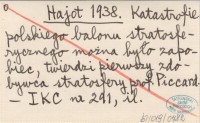 Hajot 1938. Katastrofie
polskiego balonu stratosfe-
rycznego można było zapo-
biec, twierdzi pierwszy zdo-
bywca stratosfery prof. Piccard
– IKC nr 291, il.